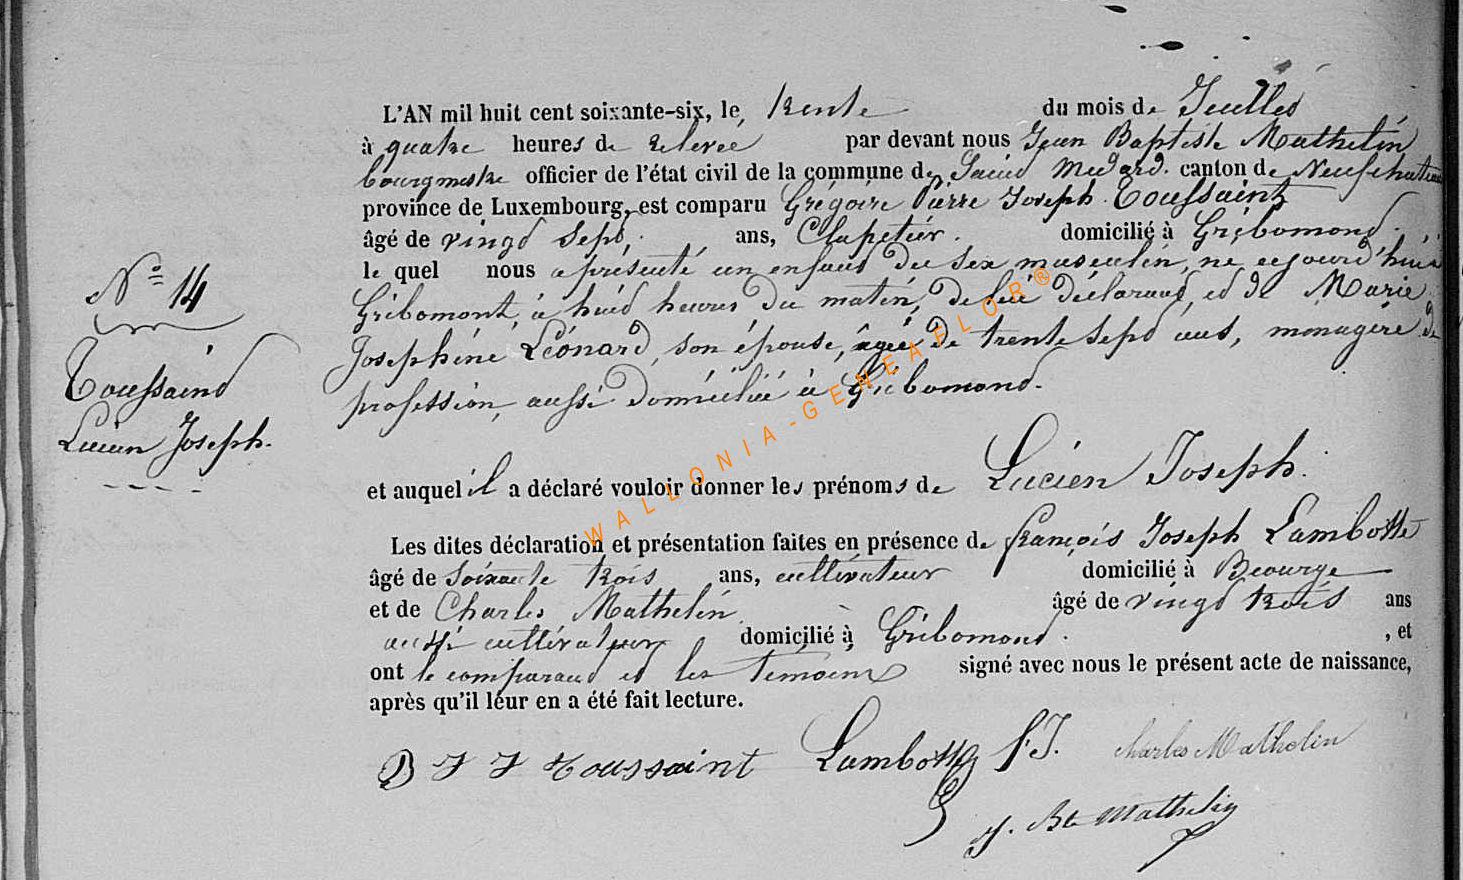 L'AN mil huit cent soixante-six, le trente du mois de Juillet
à quatre heures de relevée par devant nous Jean Baptiste Mathelin
bourgmestre officier de l'état civil de la commune de Saint Médard. canton de Neufchateau
province de Luxembourg, est comparu Grégoire Pierre Joseph Toussaint
âgé de vingt sept, ans, Clapetier. domicilié à Gribomont.
le quel nous a présenté un enfant du sexe masculin, né aujourd'hui à
Gribomont, à huit heures du matin, de lui déclarant, et de Marie
Joséphine Léonard, son épouse, âgée de trente sept ans, ménagère de
profession, aussi domiciliée à Gribomont.
N° 14
Toussaint
Lucien Joseph.
et auquel il a déclaré vouloir donner les prénoms de Lucien Joseph.
Les dites déclaration et présentation faites en présence de françois Joseph Lambotte
âgé de soixante trois ans, cultivateur domicilié à Beourge
et de Charles Mathelin âgé de vingt trois ans
aussi cultivateur domicilié à Gribomont. , et
ont le comparant et les témoins signé avec nous le présent acte de naissance,
après qu'il leur en a été fait lecture.
Toussaint Lambotte f.J. Charles Mathelin
J. Bte Mathelin
WALLONIA-GENEAFLOR®